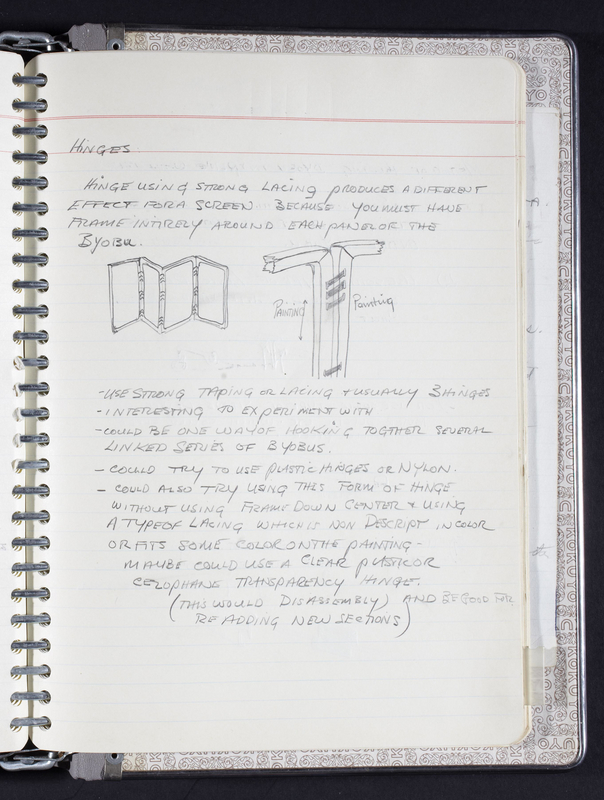 HINGES
HINGE USING STRONG LACING PRODUCES A DIFFERENT
EFFECT FOR A SCREEN BECAUSE YOU MUST HAVE
FRAME INTIRELY AROUND EACH PANEL OR THE
BYOBU.
PAINTING
Painting
-USE STRONG TAPING OR LACING + USUALLY 3 HINGES
-INTERESTING TO EXPERIMENT WITH
-COULD BE ONE WAY OF HOOKING TOGTHER SEVERAL
LINKED SERIES OF BYOBUS.
- COULD TRY TO USE PLASTIC HINGES OR NYLON.
- COULD ALSO TRY USING THIS FORM OF HINGE
WITHOUT USING FRAME DOWN CENTER + USING
A TYPE OF LACING WHICH IS NON DESCRIPT IN COLOR
OR FITS SOME COLOR ON THE PAINTING-
MAUBE COULD USE A CLEAR PLASTIC OR
CELOPHANE TRANSPARENCY HINGE.
(THIS WOULD DISASSEMBLY) AND BE GOOD FOR
RE ADDING NEW SECTIONS)
KOKUYO